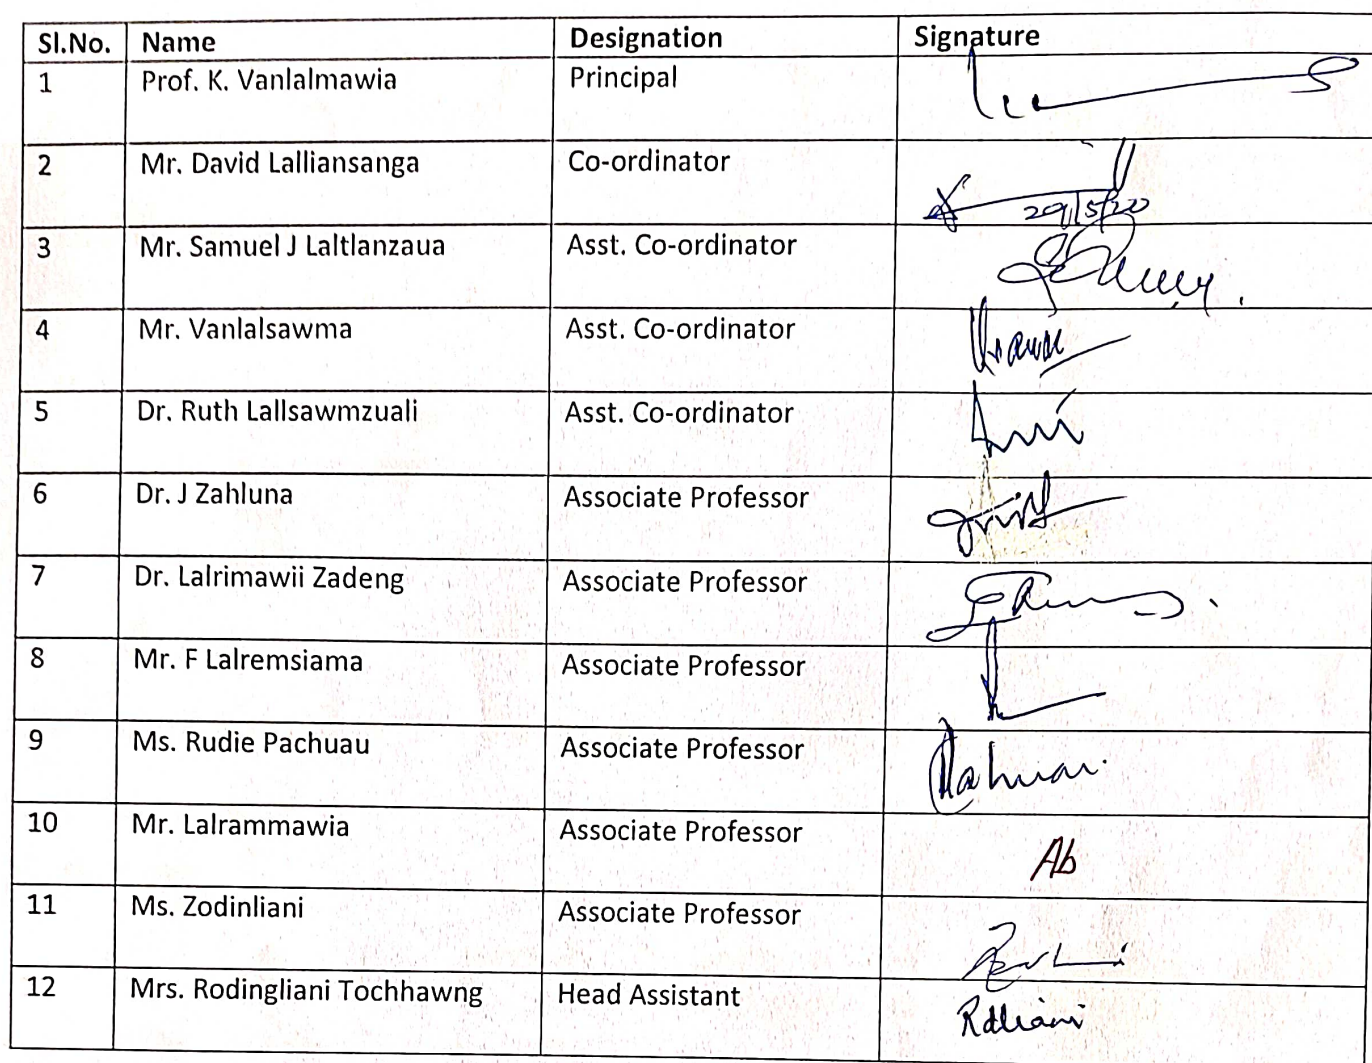 Sl.No. Name Designation Signature
1 Prof. K. Vanlalmawia Principal
2 Mr. David Lalliansanga Co-ordinator
29/5/20
3 Mr. Samuel J Laltlanzaua Asst. Co-ordinator
4 Mr. Vanlalsawma Asst. Co-ordinator
5 Dr. Ruth Lallsawmzuali Asst. Co-ordinator
6 Dr. J Zahluna Associate Professor
7 Dr. Lalrimawii Zadeng Associate Professor
8 Mr. F Lalremsiama Associate Professor
9 Ms. Rudie Pachuau Associate Professor
10 Mr. Lalrammawia Associate Professor Ab
11 Ms. Zodinliani Associate Professor
12 Mrs. Rodingliani Tochhawng Head Assistant